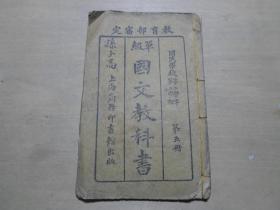 教育部審定
單級
國文教科書
國民學校
第五冊
上海商務印書館出版